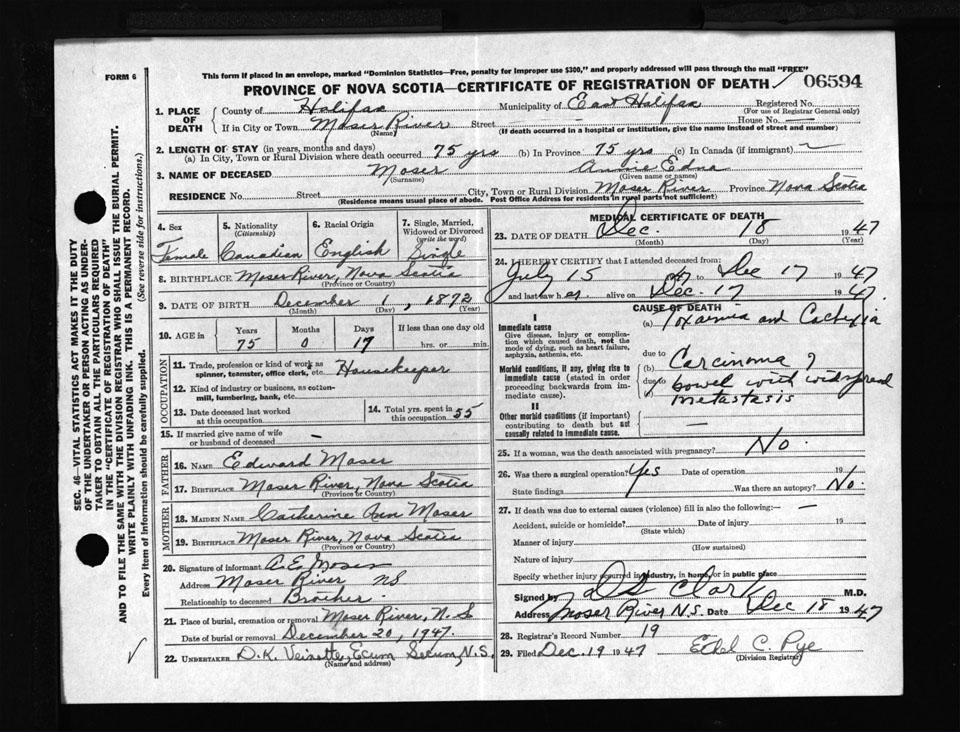 FORM 6
This form if placed in an envelope, marked "Dominion Statistics—Free, penalty for improper use $300," and properly addressed will pass through the mail "FREE"
PROVINCE OF NOVA SCOTIA—CERTIFICATE OF REGISTRATION OF DEATH / 06594
1. PLACE OF DEATH County of Halifax Municipality of East Halifax Registered No. (For use of Registrar General only)
If in City or Town Moser River (Name) Street — House No. —
(If death occurred in a hospital or institution, give the name instead of street and number)
2. LENGTH OF STAY (in years, months and days)
(a) In City, Town or Rural Division where death occurred 75 yrs (b) In Province 75 yrs (c) In Canada (if immigrant) ~
3. NAME OF DECEASED Moser (Surname) Annie Edna (Given name or names)
RESIDENCE No. Street City, Town or Rural Division Moser River Province Nova Scotia
(Residence means usual place of abode. Post Office Address for Residents in rural parts not sufficient)
4. Sex 5. Nationality (Citizenship) 6. Racial Origin 7. Single, Married, Widowed or Divorced (write the word)
Female Canadian English Single
8. BIRTHPLACE Moser River, Nova Scotia
(Province or Country)
9. DATE OF BIRTH December 1, 1872
(Month) (Day) (Year)
10. AGE in Years Months Days If less than one day old
75 0 17 hrs. or min.
OCCUPATION
11. Trade, profession or kind of work as spinner, teamster, office clerk, etc. Housekeeper
12. Kind of industry or business, as cotton-mill, lumbering, bank, etc.
13. Date deceased last worked at this occupation 14. Total yrs. spent in this occupation 55
15. If married give name of wife or husband of deceased —
FATHER
16. NAME Edward Moser
17. BIRTHPLACE Moser River, Nova Scotia
(Province or Country)
MOTHER
18. MAIDEN NAME Catherine Ann Moser
19. BIRTHPLACE Moser River, Nova Scotia
(Province or Country)
20. Signature of informant A. E. Moser
Address Moser River NS
Relationship to deceased Brother.
21. Place of burial, cremation or removal Moser River, N.S
Date of burial or removal December 20, 1947.
22. UNDERTAKER Ecum Secum, N.S.
(Name and address)
MEDICAL CERTIFICATE OF DEATH
23. DATE OF DEATH Dec. 18 1947
(Month) (Day) (Year)
24. I HEREBY CERTIFY that I attended deceased from:
July 15 47 to Dec 17 1947
and last saw her alive on Dec. 17 1947.
CAUSE OF DEATH
I
Immediate cause
Give disease, injury or complication which caused death, not the mode of dying, such as heart failure, asphyxia, asthenia, etc.
(a) Toxaemia and Cachexia
due to
Morbid conditions, if any, giving rise to immediate cause (stated in order proceeding backwards from immediate cause).
(b) Carcinoma of
due to bowel with widspread
metastasis
II
Other morbid conditions (if important) contributing to death but not causally related to immediate cause.
25. If a woman, was the death associated with pregnancy? No.
26. Was there a surgical operation? Yes Date of operation 19
State findings Was there an autopsy? No.
27. If death was due to external causes (violence) fill in also the following:— —
Accident, suicide or homicide? Date of injury 19
(State which)
Manner of injury
(How sustained)
Nature of injury
Specify whether injury occurred in industry, in home, or in public place
Signed by Clark M.D.
Address Moser River N.S. Date Dec 18 1947
28. Registrar's Record Number 19
29. Filed Dec. 19 1947 Ethel C. Pye
(Division Registrar)
SEC. 46—VITAL STATISTICS ACT MAKES IT THE DUTY
OF THE UNDERTAKER OR PERSON ACTING AS UNDERTAKER TO OBTAIN ALL THE PARTICULARS REQUIRED
IN THE "CERTIFICATE OF REGISTRATION OF DEATH"
AND TO FILE THE SAME WITH THE DIVISION REGISTRAR WHO SHALL ISSUE THE BURIAL PERMIT.
WRITE PLAINLY WITH UNFADING INK. THIS IS A PERMANENT RECORD.
Every item of information should be carefully supplied. (See reverse side for instructions.)